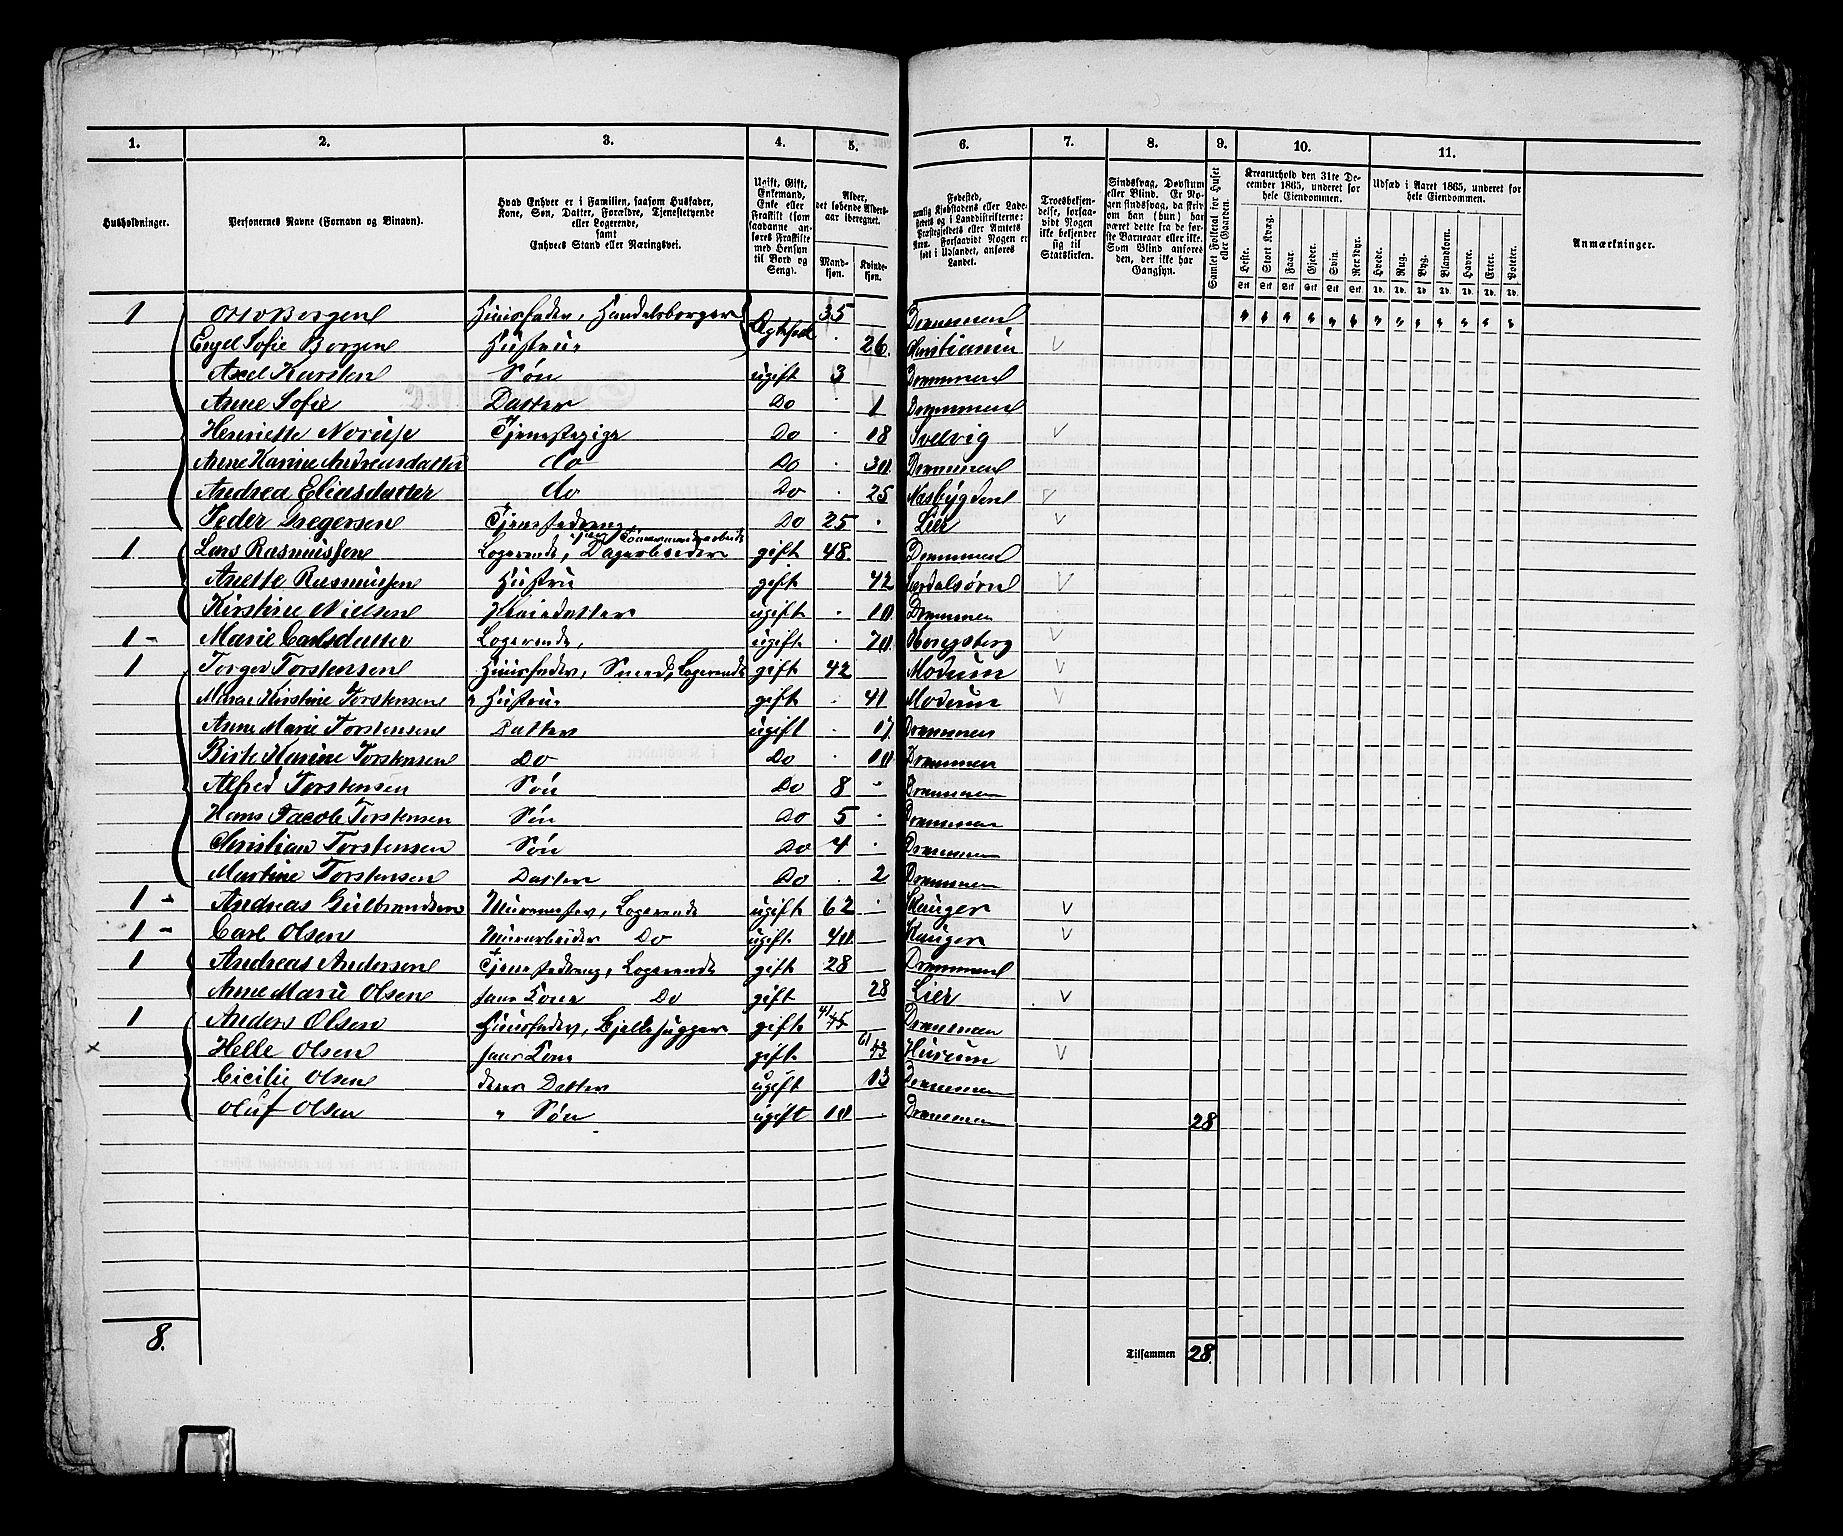 1. 2. 3. 4. 5. 6. 7. 8. 9. 10. 11.
Husholdninger.
Personernes Navne (Fornavn og Binavn).
Hvad Enhver er i Familien, saasom Husfader, Kone, Søn, Datter, Forældre, Tjenestetyende eller Logerende, samt Enhvers Stand eller Næringsvei.
Ugift, Gift, Enkemand, Enke eller Fraskilt (som saadanne anføres Fraskilte med Hensyn til Bord og Seng).
Alder, det løbende Aldersaar iberegnet.
Mandkjøn. Kvindekjøn.
Fødested,
Troesbekjendelse, forsaavidt Nogen ikke bekjender sig til Statskirken.
Sindssvag, Døvstum eller Blind. Er Nogen sindssvag, da skrives om han (hun) har været dette fra de første Barneaar eller ikke. Som Blind anføres den, der ikke har Gangsyn.
Samlet Folketal for Huset eller Gaarden.
Kreaturhold den 31te December 1865, underet for hele Eiendommen.
Heste. Stort Kvæg. Faar. Gjeder. Svin. Rensdyr.
Udsæd i Aaret 1865, underet for hele Eiendommen.
Hvede. Rug. Byg. Blandkorn. Havre. Erter. Poteter.
Anmærkninger.
1 Otto Borgen Huusfader, Handelsborger Ægtefolk 35 Drammen
Engel Sofie Borgen Hustru 26. Christiania
Axel Karsten Søn ugift 3 Drammen
Anne Sofie Datter Do 1 Drammen
Henriette Tjenestepige Do 18 Svelvig
Anne Karine Andreasdatter do Do 30 Drammen
Andrea Eliasdatter do Do 25 Næsbygden
Peder Gregersen Tjenestedreng Do 25 Lier
1 Lars Rasmussen Logerende, Dagarbeider gift 48. Drammen
Anette Rasmussen Hustru gift 42 Lærdalsøren
Kirstine Nielsen Pleiedatter ugift 10 Drammen
1 - Marie Carlsdatter Logerende, ugift 70 Kongsberg
1 Torger Torstensen Huusfader, Smed, Logerende gift 42 Modum
Maren Kirstine Torstensen Hustru gift 41 Modum
Anne Marie Torstensen Datter ugift 17 Drammen
Birthe Marine Torstensen Do Do 10 Drammen
Alfred Torstensen Søn Do 8 Drammen
Hans Jacob Torstensen Søn Do 5 Drammen
Christian Torstensen Søn Do 4 Drammen
Martine Torstensen Datter Do 2 Drammen
1 - Andreas Gulbrandsen Murmester, Logerende ugift 62 Skauger
1 - Carl Olsen Murarbeider Do ugift 40 Skauger
1 Andreas Andersen Tjenestedreng, Logerende gift 28 Drammen
Anne Marie Olsen hans Kone Do gift 28 Lier
1 Anders Olsen Huusfader, Bjelkehugger gift 41 45 Drammen
Helle Olsen hans Kone gift 43 Hurum
Cicilie Olsen deres Datter ugift 13 Drammen
Oluf Olsen " Søn ugift 10 Drammen 28
8.
Tilsammen 28.